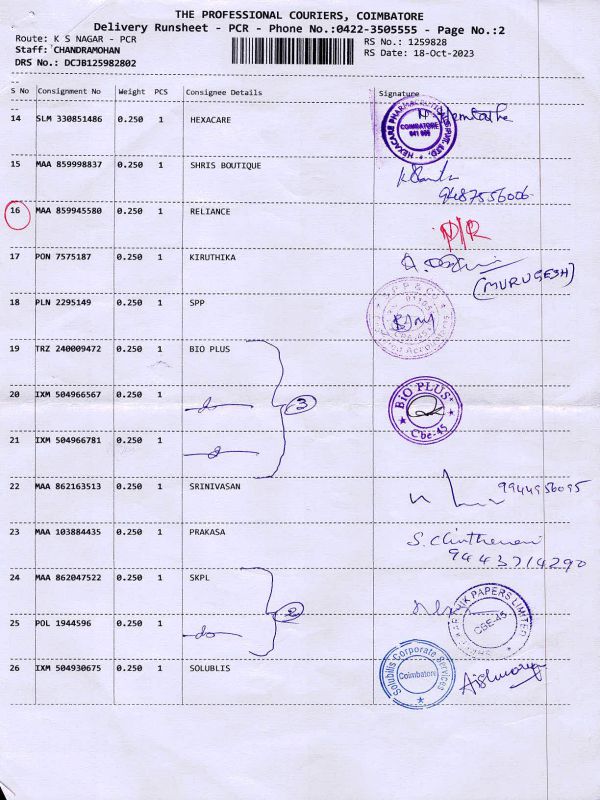 THE PROFESSIONAL COURIERS, COIMBATORE
Delivery Runsheet - PCR - Phone No.:0422-3505555 - Page No.:2
Route: K S NAGAR - PCR
RS No.: 1259828
Staff: CHANDRAMOHAN
RS Date: 18-Oct-2023
DRS No.: DCJB125982802
S No Consignment No Weight PCS Consignee Details Signature
14 SLM 330851486 0.250 1 HEXACARE
HEXACARE PHARMACEUTICALS PVT. LTD. COIMBATORE
15 MAA 859998837 0.250 1 SHRIS BOUTIQUE
9487556006
16 MAA 859945580 0.250 1 RELIANCE N/R
17 PON 7575187 0.250 1 KIRUTHIKA
(MURUGESH)
18 PLN 2295149 0.250 1 SPP
SPP & CO CBE-45
19 TRZ 240009472 1 BIO PLUS
20 IXM 504966567 0.250 1 do 3 BIO PLUS Cbe-45
21 IXM 504966781 0.250 1 do
22 MAA 862163513 0.250 1 SRINIVASAN 9944956095
23 MAA 103884435 0.250 1 PRAKASA
9443714290
24 MAA 862047522 0.250 1 SKPL
KARTHIK PAPERS LIMITED CBE-45
25 POL 1944596 0.250 1 do 2
26 IXM 504930675 0.250 1 SOLUBLIS
Solubilis Corporate Services Coimbatore
Aishwarya